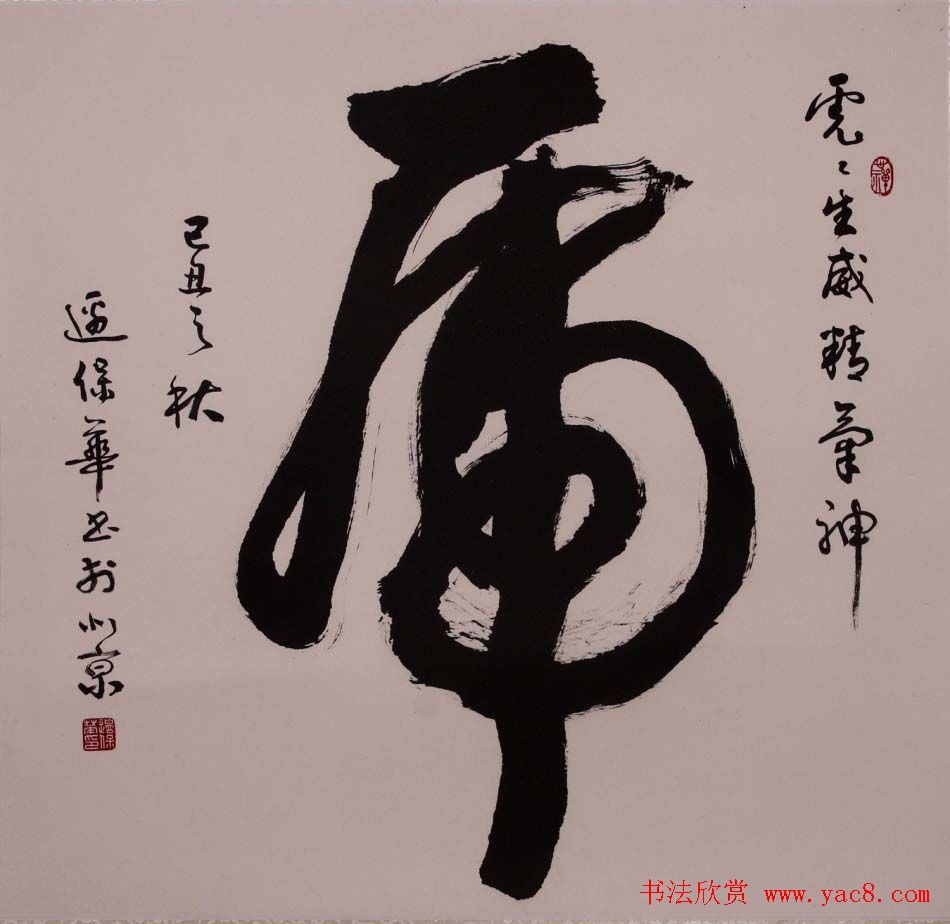 虎〻生威精氣神
虎
己丑之秋
邊保華书於北京
邊保華印
书法欣赏 www.yac8.com